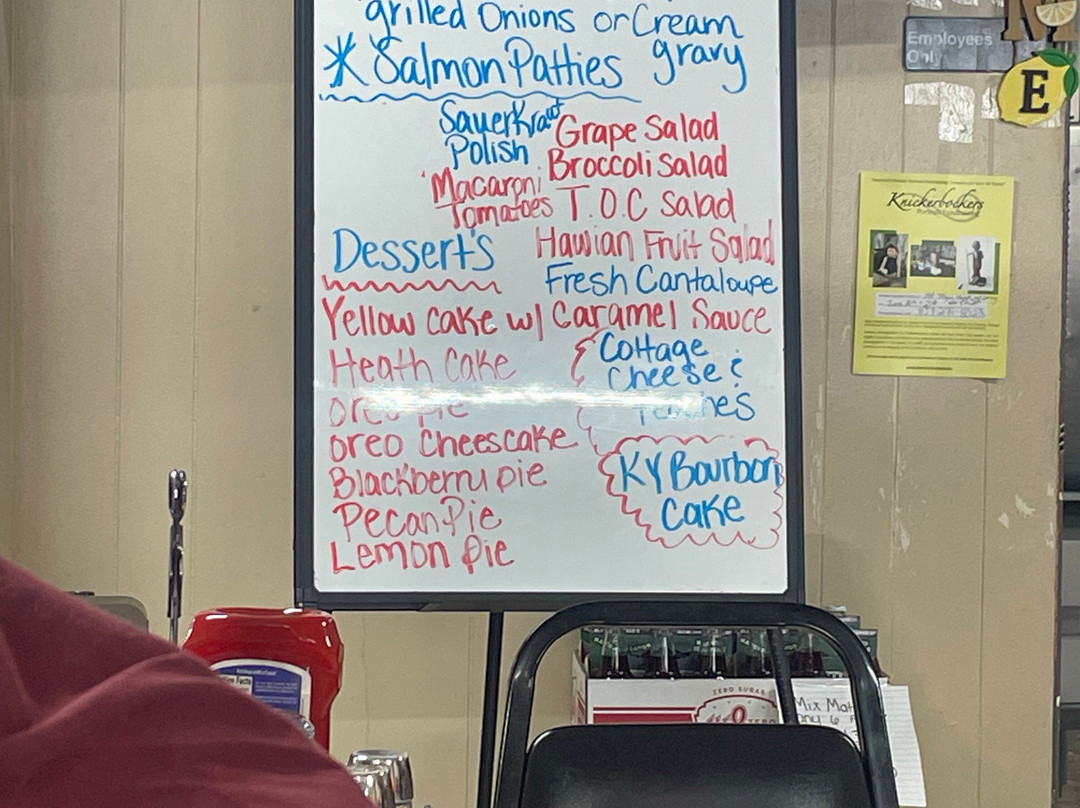 grilled Onions or Cream
gravy
* Salmon Patties
Sauerkraut
Polish
Macaroni
Tomatoes
Grape Salad
Broccoli Salad
T.O.C Salad
Hawian Fruit Salad
Fresh Cantaloupe
Desserts
Yellow cake w/ Caramel Sauce
Heath Cake
Oreo Pie
Oreo Cheescake
Blackberry pie
Pecan Pie
Lemon Pie
Cottage
Cheese &
Peaches
KY Bourbon
Cake
Employees
Only
E
Knickerbockers
ZERO SUGAR
ZERO
Mix Mat